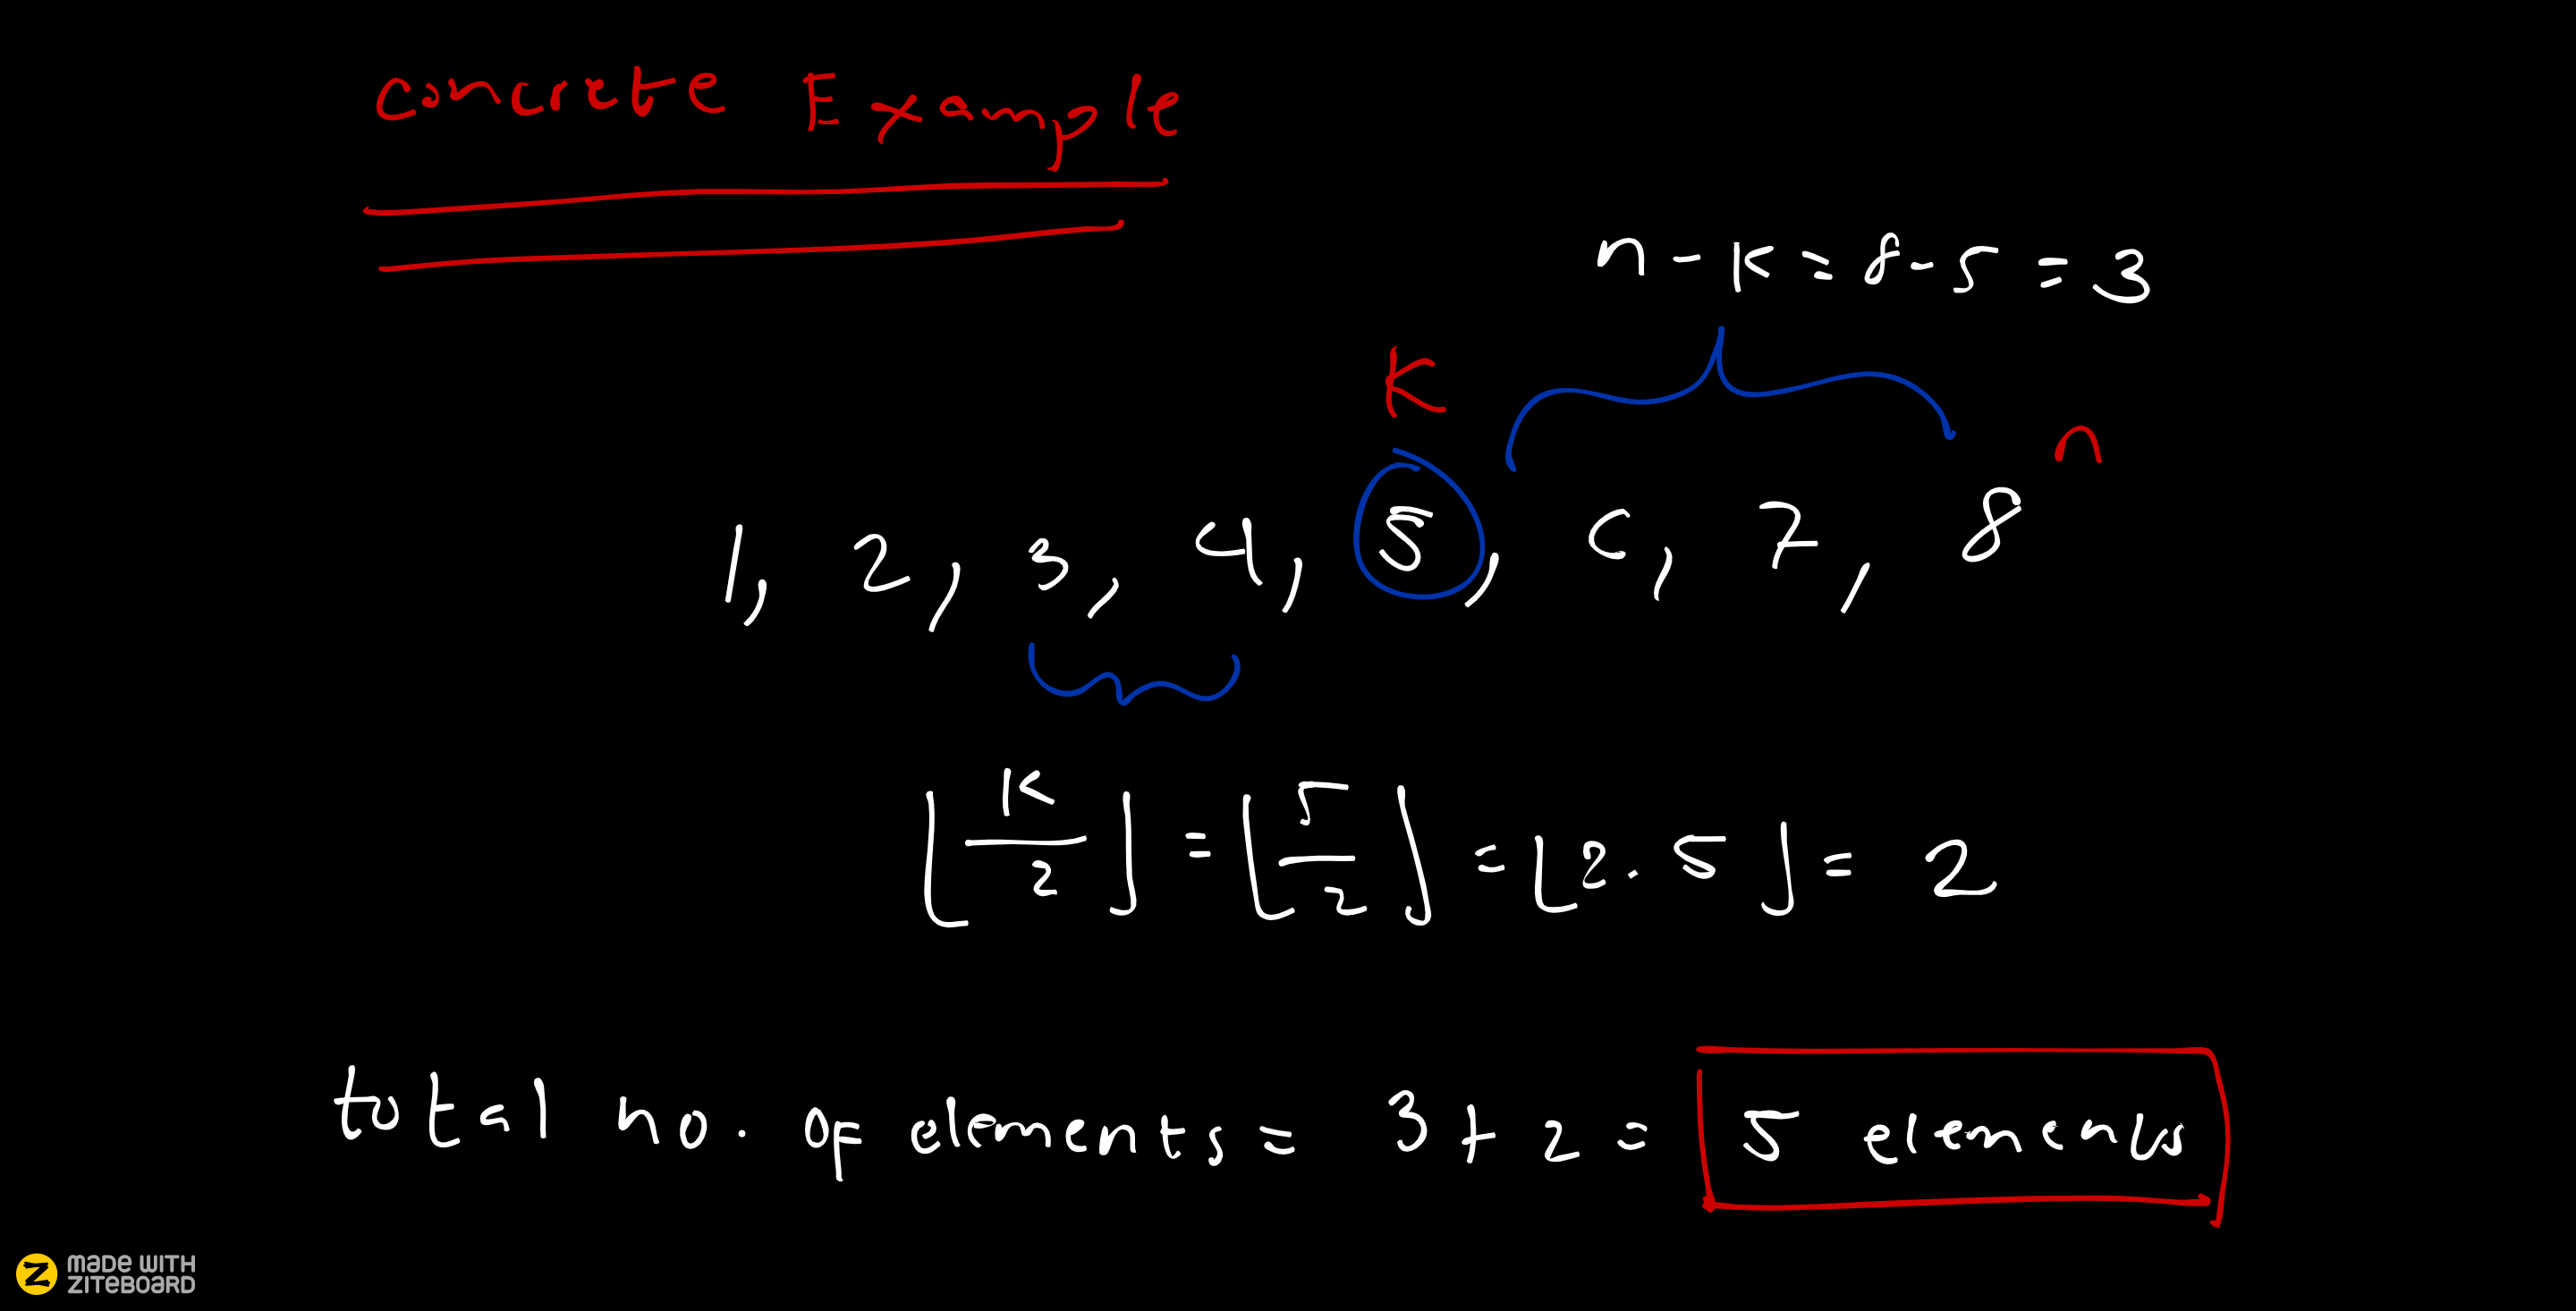 Concrete Example
n - K = 8 - 5 = 3
K
n
1, 2, 3, 4, 5, c, 7, 8
⌊K/2⌋ = ⌊5/2⌋ = ⌊2.5⌋ = 2
total no. of elements = 3 + 2 = 5 elements
MADE WITH
ZITEBOARD